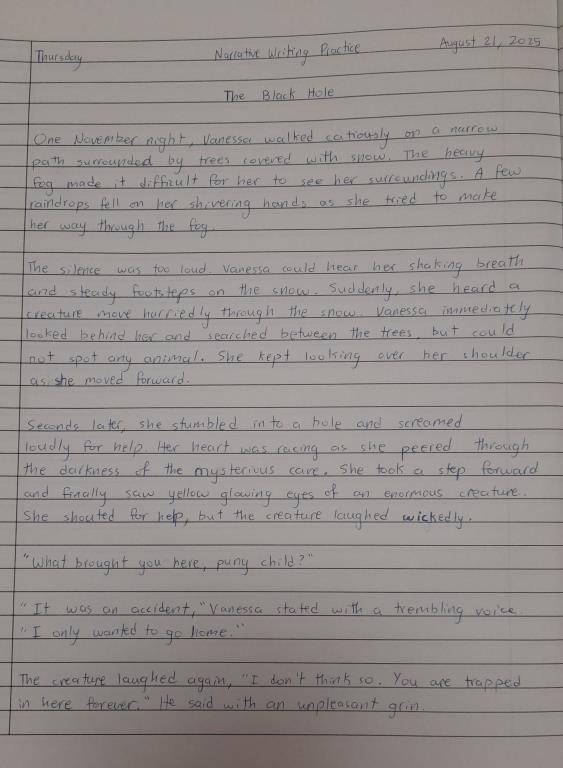 Thursday Narrative Writing Practice August 21, 2025
The Black Hole
One November night, Vanessa walked catiously on a narrow
path surrounded by trees covered with snow. The heavy
fog made it difficult for her to see her surroundings. A few
raindrops fell on her shivering hands as she tried to make
her way through the fog.
The silence was too loud. Vanessa could hear her shaking breath
and steady footsteps on the snow. Suddenly, she heard a
creature move hurriedly through the snow. Vanessa immediately
looked behind her and searched between the trees, but could
not spot any animal. She kept looking over her shoulder
as she moved forward.
Seconds later, she stumbled in to a hole and screamed
loudly for help. Her heart was racing as she peered through
the darkness of the mysterious cave. She took a step forward
and finally saw yellow glowing eyes of an enormous creature.
She shouted for help, but the creature laughed wickedly.
"What brought you here, puny child?"
"It was an accident," Vanessa stated with a trembling voice.
"I only wanted to go home."
The creature laughed again, "I don't think so. You are trapped
in here forever." He said with an unpleasant grin.